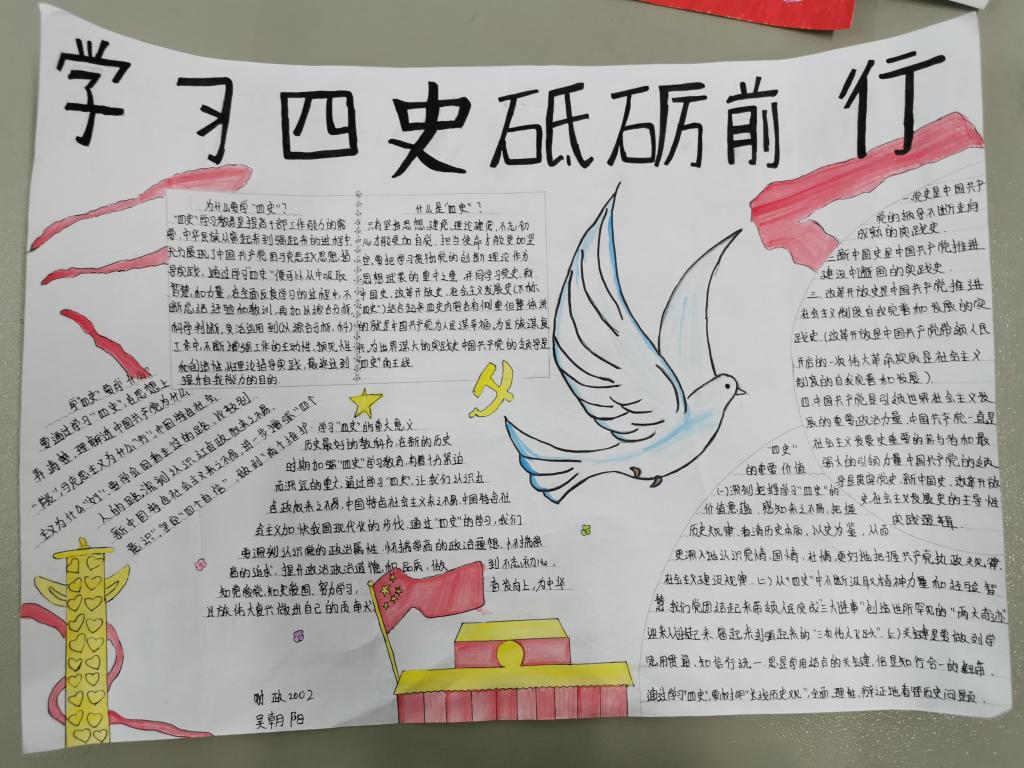 学习四史砥砺前行
为什么要学“四史”?
“四史”学习教育是提高干部工作能力的需
要,中华民族从富起来到强起来的过程中
大力展现了中国共产党用马克思主义思想指
导实践,通过学习“四史”便可以从中吸取
智慧和力量,在全面反复学习的过程中,不
断总结经验和教训,再加以综合分析,
科学判断,灵活运用到(以综合分析,科)
工作中,不断增强工作的主动性、预见性
和创造性,以理论指导实践,最终达到
提升自我能力的目的.
什么是“四史”?
只有坚持思想建党、理论建党,不忘初
心才能更加自觉,担当使命才能更加坚
定,要把学习贯彻党的创新理论作为
思想武装的重中之重,并同学习党史、新
中国史、改革开放史、社会主义发展史(下称
史)结合起来四史内容各有侧重但整体讲
的就是中国共产党为人民谋幸福,为民族谋复
兴,为世界谋大同的实践史 中国共产党的领导是
史”的主线
学“四史”要学什么?
要通过学习“四史”,在思想上
弄清楚、理解透中国共产党为什么
“能”,马克思主义为什么“行”,中国特色社会
主义为什么“好”,要学会回看走过的路,比较别
人的路,深刻认识红色政权来之不易,
新中国特色社会主义来之不易,进一步增强“四个
意识”,坚定“四个自信”,做到“两个维护”.
学习“四史”的重大意义
历史最好的教科书,在新的历史
时期加强“四史”学习教育,有着十分紧迫
而深远的重大,通过学习“四史”,让我们认识红
色政权来之不易,中国特色社会主义来之不易,中国特色社
会主义加快我国现代化的步伐.通过“四史”的学习,我们
要深刻认识党的政治属性,怀揣崇高的政治理想,怀揣崇
高的追求,提升政治政治道德和品质,做 到不忘初心,
知党爱党,知史爱国,努力学习, 奋发向上,为中华
民族伟大复兴做出自己的贡献
财政2002
吴朝阳
一.党史是中国共产
党的领导不断走向
成熟的实践史.
二.新中国史是中国共产党推进
建设中新国的实践史.
三.改革开放史是中国共产党推进
社会主义制度自我完善和发展的实
践史.(改革开放是中国共产党带领人民
开启的一次伟大革命实质是社会主义
制度的自我完善和发展).
四.中国共产党是引领世界社会主义发
展的重要政治力量,中国共产党一直是
社会主义发展史重要的参与者和最
强大的引领力量.中国共产党的领
导是贯穿党史、新中国史、改革开放
史、社会主义发展史的主导性
实践逻辑.
“四史”
的重要价值
(一)深刻把握学习“四史”的
价值意蕴,感知来之不易,把握
历史规律,看清历史本质,以史为鉴,从而
更深入地认识党情、国情、社情,更好地把握共产党执政规律、
社会主义建设规律.(二)从“四史”中不断汲取精神力量和经验智
慧.我们党团结起来带领人民完成“三大进事”创造世所罕见的“两大奇迹”
迎来从站起来、富起来到强起来的“三次伟大飞跃”.(三)关键是要做到学
思用贯通、知信行统一.思是学用结合的关键,信是知行合一的纽带.
通过学习“四史”,要树牢“长线历史观”,全面、理性、辩证地看待历史问题